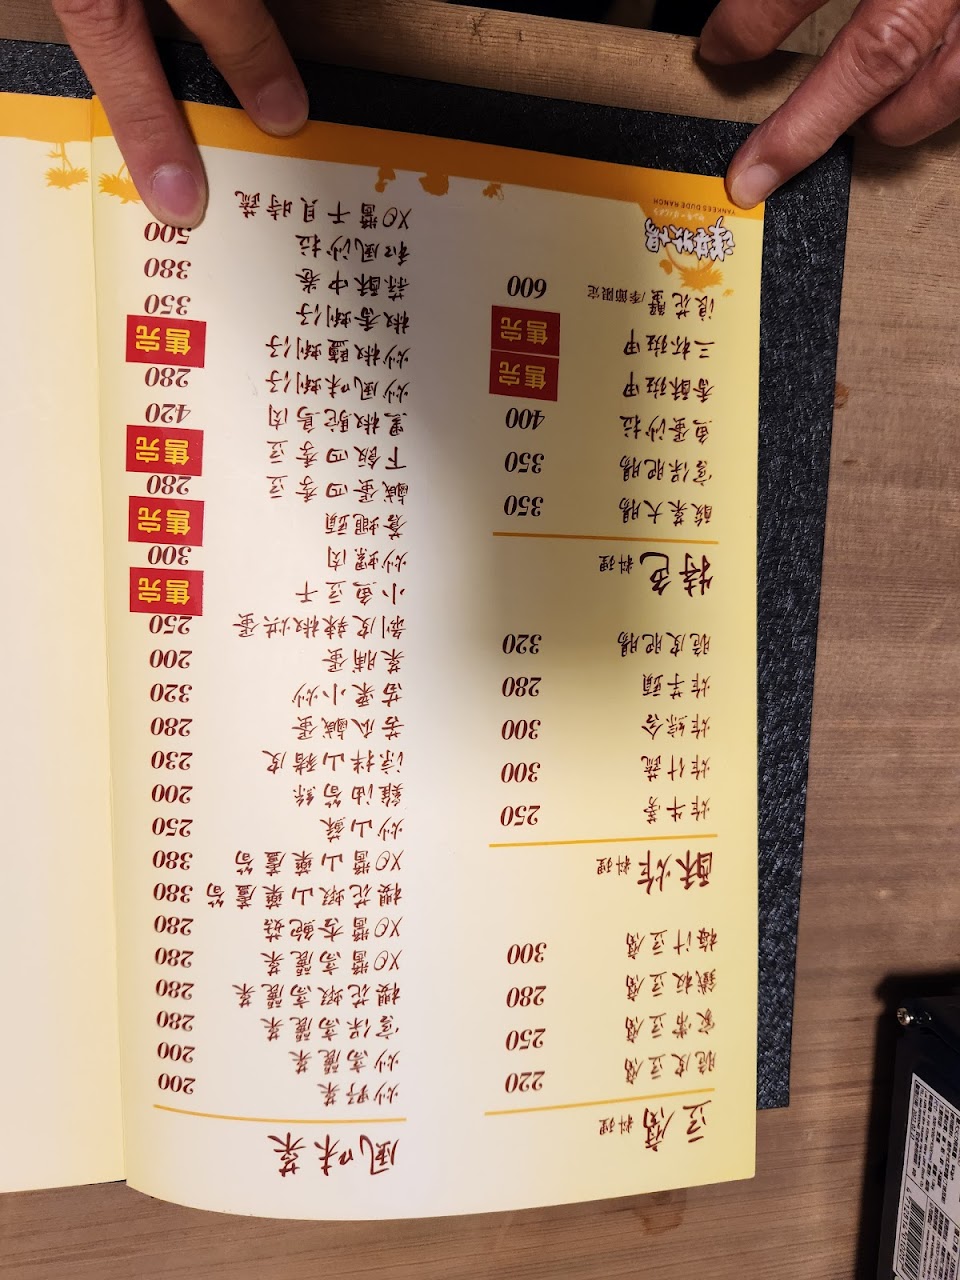 豆腐料理
脆皮豆腐 220
家常豆腐 250
鐵板豆腐 280
梅汁豆腐 300
酥炸料理
炸牛蒡 250
炸什蔬 300
炸綜合 300
炸芋頭 280
脆皮肥腸 320
特色料理
酸菜大腸 350
宮保肥腸 350
魚蛋沙拉 400
香酥斑甲 售完
三杯斑甲 售完
浪花蟹/季節限定 600
YANKEES DUDE RANCH
風味菜
炒野菜 200
炒高麗菜 200
宮保高麗菜 280
櫻花蝦高麗菜 280
XO醬高麗菜 280
XO醬杏鮑菇 280
櫻花蝦山藥蘆筍 380
XO醬山藥蘆筍 380
炒山蘇 250
雞油筍絲 200
涼拌山豬皮 230
苦瓜鹹蛋 280
小炒 320
菜脯蛋 200
剝皮辣椒烘蛋 250
小魚豆干 售完
炒螺肉 300
蒼蠅頭 售完
鹹蛋四季豆 280
下飯四季豆 售完
黑椒鴕鳥肉 420
炒風味蜊仔 280
炒椒鹽蜊仔 售完
椒香蜊仔 350
蒜酥中卷 380
和風沙拉 500
XO醬干貝時蔬